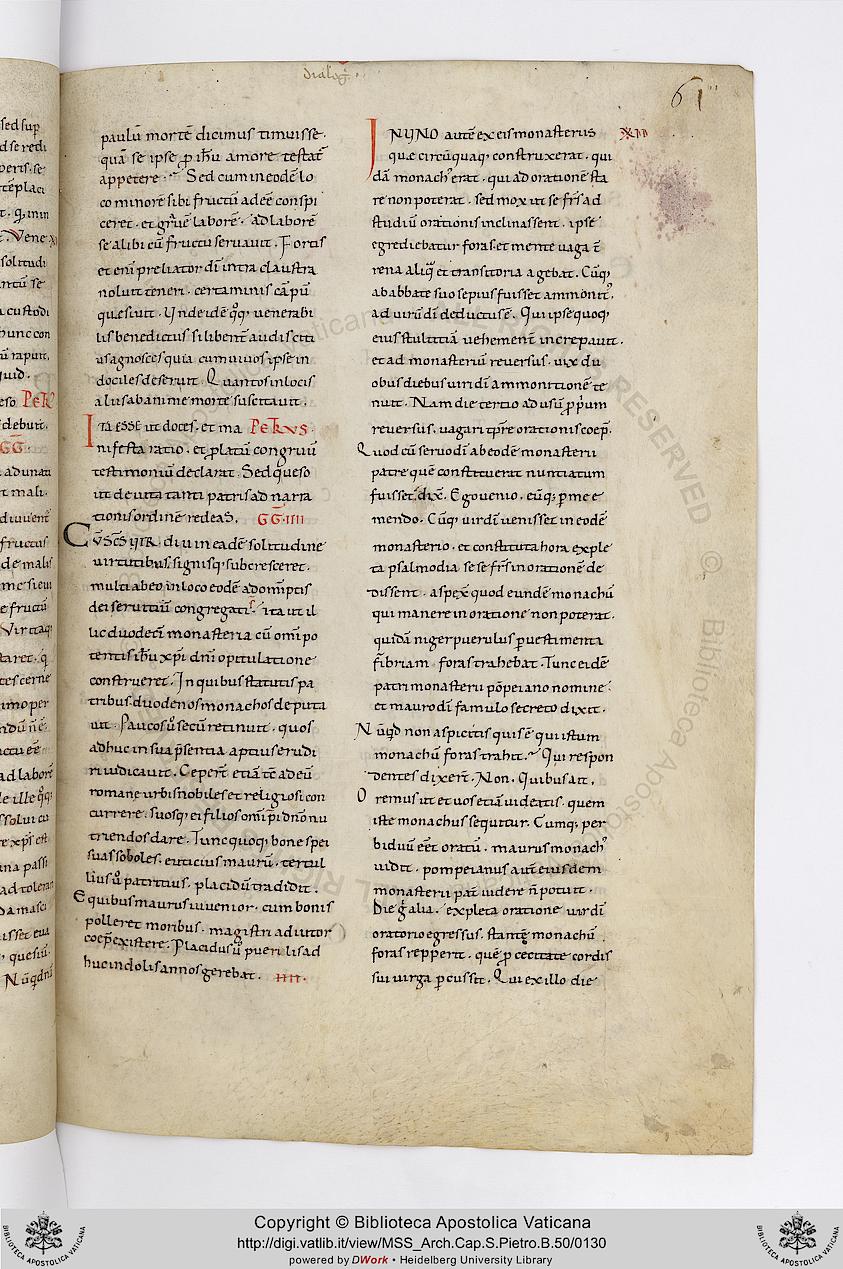 dialog̅
61
paulū mortē dicimus timuisse.
quā se ipse ꝓ ihū amore testat̅
appetere. Sed cum in eodē lo
co minorē sibi fructū adeē conspi
ceret. et gͣuē laborē. ad laborē
se alibi cū fructu seruauit. Fortis
et eni preliator dī intra claustra
noluit teneri. certaminis cāpū
quesiuit. Unde idē qꝫ. uenerabi
lis benedictus si libent̅ audis citi
us agnosces quia cum uiuos ipse in
dociles deseruit. Quantos in locis
aliis ab anime morte suscitauit.
ITA ESSE ut doces. et ma PETRVS.
nifesta ratio. et ꝓlatū congruū
testimoniū declarat. Sed queso
ut de uita tanti patris ad narra
tionis ordinē redeas. GG. IIII
CŪ SCS UIR diu in eadē solitudine
uirtutibus. signisqꝫ subcresceret.
multi ab eo in loco eodē ad omīptis
dei seruitiū congregati. ita ut il
lic duodeci monasteria cū omī po
tentis ihū xp̄i dnī opitulatione
construeret. In quibus statutis pa
tribus duodenos monachos deputa
uit. Paucos ū secū retinuit. quos
adhuc in sua p̄sentia aptius erudi
ri iudicauit. Ceper̄t etiā tē ad eū
romane urbis nobiles et religiosi con
currere. suosqꝫ ei filios omīp̄i dno nu
triendos dare. Tunc quoqꝫ bone spei
suas soboles. euticius maurū. tertul
lius ū patritius. placidū tradidit.
E quibus maurus iuuenior. cum bonis
polleret moribus. magistri adiutor
coep̄ existere. Placidus ū pueri lis ad
huc indolis annos gerebat. IIII.
IN UNO autē ex eis monasteriis XIII
que circūquaqꝫ construxerat. qui
dā monachꝰ erat. qui ad orationē sta
re non poterat. sed mox ut se fr̄s ad
studiū orationis inclinassent. ipse
egrediebatur foras. et mente uaga t̄
rena aliq̄ et transitoria agebat. Cūqꝫ
ab abbate suo sepius fuisset ammonitꝰ.
ad uirū dī deductus ē. Qui ipse quoqꝫ
eius stultitiā uehement̄ increpauit.
et ad monasteriū reuersus. uix du
obus diebus uiri dī ammonitionē te
nuit. Nam die tertio ad usū ꝓp̄um
reuersus. uagari tp̄re orationis coep̄.
Quod cū seruo dī ab eodē monasterii
patre quē constituerat nuntiatum
fuisset. dix̄. Ego uenio. eūqꝫ ꝑ me e
mendo. Cūqꝫ uir dī uenisset in eodē
monasterio. et constituta hora exple
ta psalmodia se se fr̄s in orationē de
dissent. aspex̄ quod eundē monachū
qui manere in oratione non poterat.
quidā niger puerulus ꝑ uestimenti
fībriam foras trahebat. Tunc eidē
patri monasterii pōpeiano nomine.
et mauro dī famulo secreto dixit.
Nūqd non aspicitis quis ē qui istum
monachū foras trahit. Qui respon
dentes dixer̄t. Non. Quibus ait.
Oremus ut et uos etiā uideatis. quem
iste monachus sequitur. Cumqꝫ per
biduū eēt oratū. maurus monachꝰ
uidit. pompeianus autē eiusdem
monasterii pat̄ uidere n̄ potuit.
Die ḡ alia. expleta oratione uir dī
oratorio egressus. stantē monachū
foras repperit. quē ꝓ cecitate cordis
sui uirga ꝑcussit. Qui ex illo die
Copyright © Biblioteca Apostolica Vaticana
http://digi.vatlib.it/view/MSS_Arch.Cap.S.Pietro.B.50/0130
powered by DWork • Heidelberg University Library